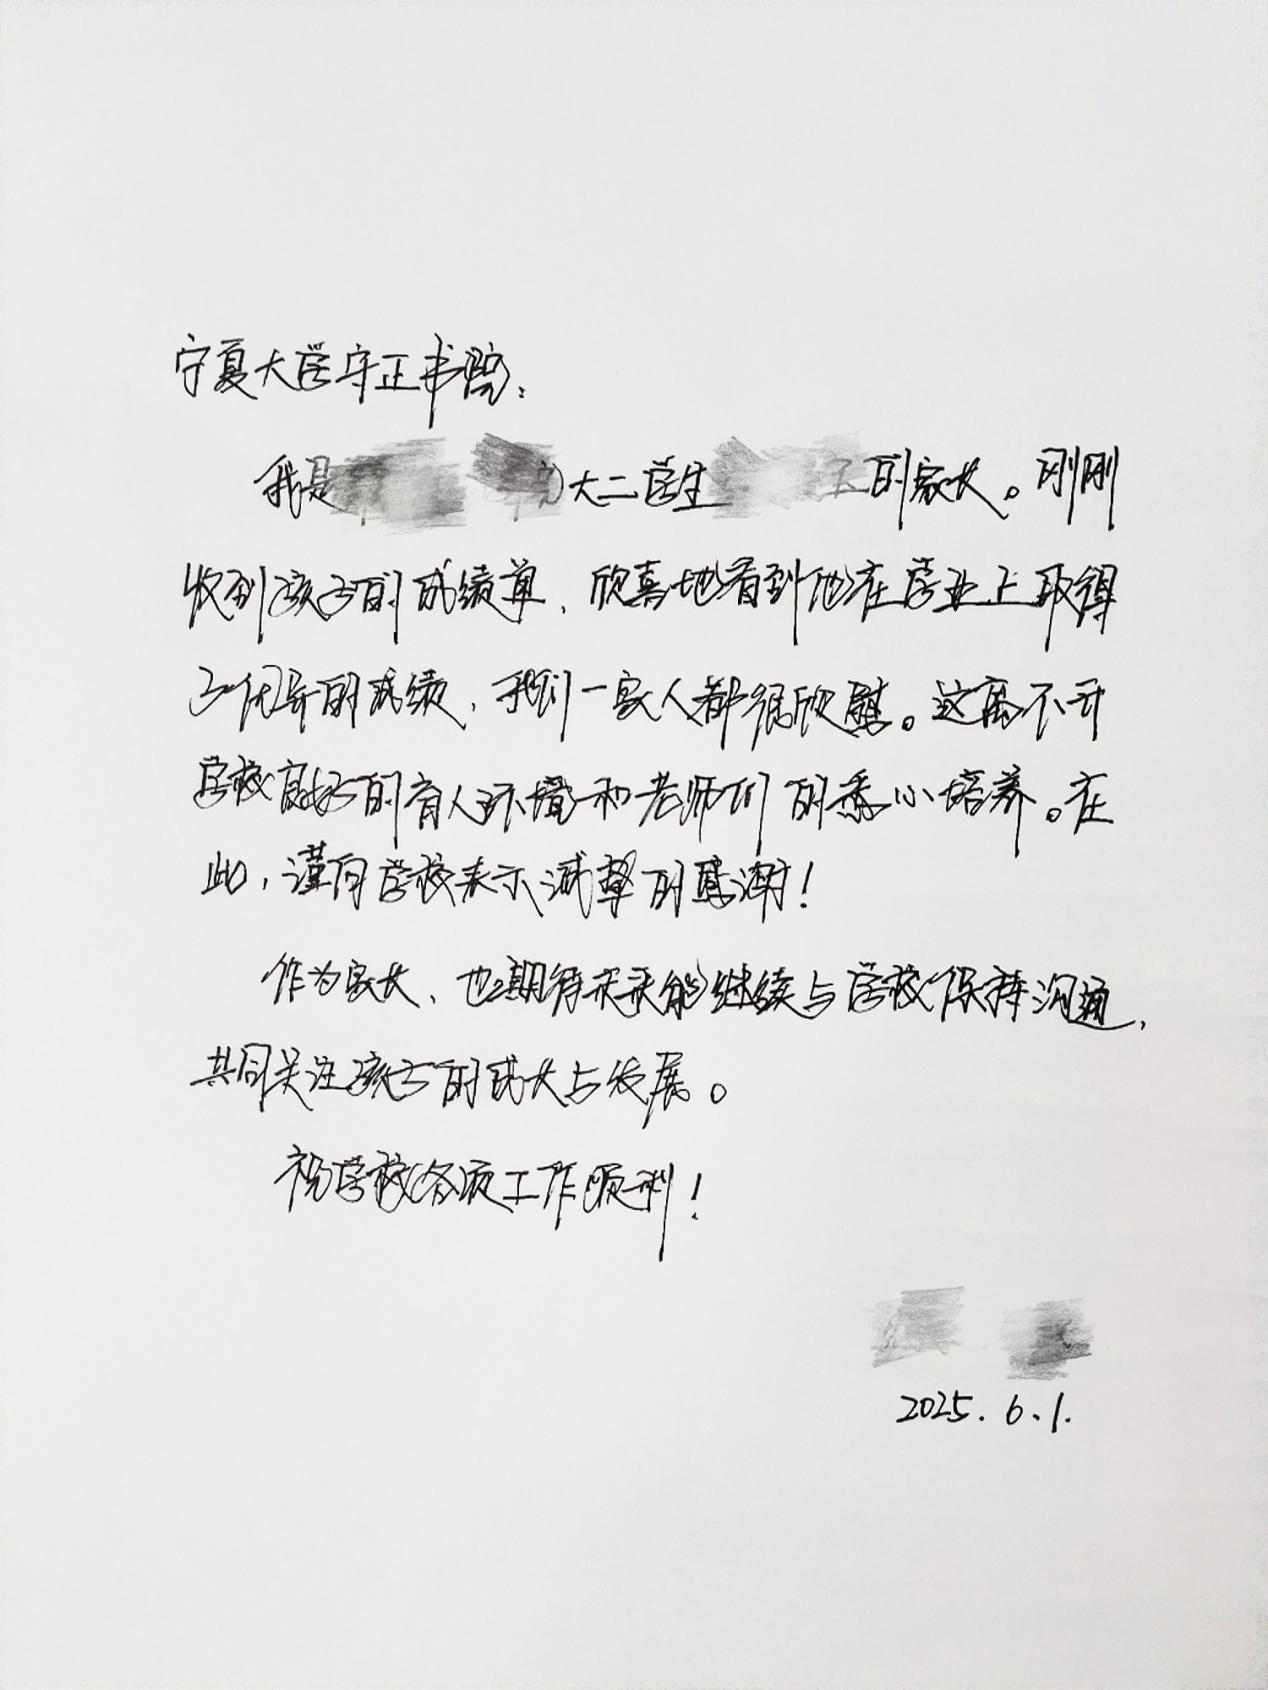 宁夏大学守正书院：
我是 大二学生 的家长。刚刚
收到孩子的成绩单，欣喜地看到他在学业上取得
了优异的成绩，我们一家人都很欣慰。这离不开
学校良好的育人环境和老师们的悉心培养。在
此，谨向学校表示诚挚的感谢！
作为家长，也期待未来能继续与学校保持沟通，
共同关注孩子的成长与发展。
祝学校各项工作顺利！
2025.6.1.